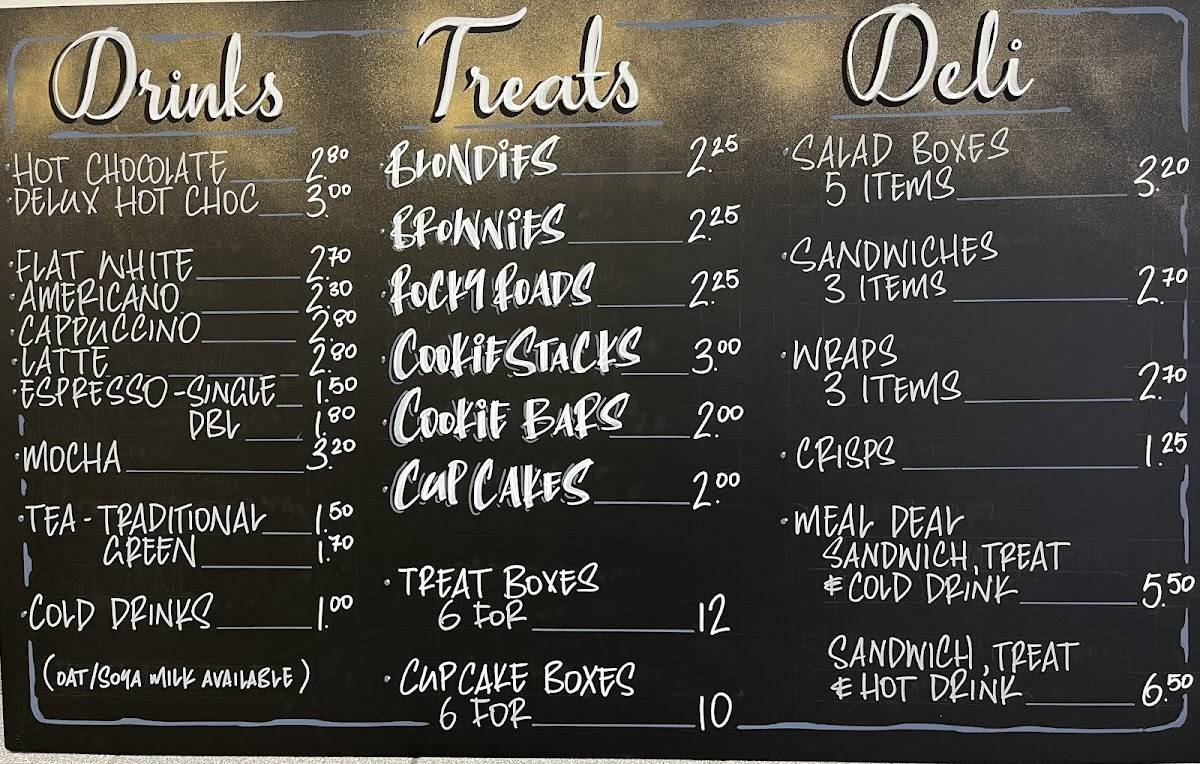 Drinks
HOT CHOCOLATE 2.80
DELUX HOT CHOC 3.00
FLAT WHITE 2.70
AMERICANO 2.30
CAPPUCCINO 2.80
LATTE 2.80
ESPRESSO - SINGLE 1.50
DBL 1.80
MOCHA 3.20
TEA - TRADITIONAL 1.50
GREEN 1.70
COLD DRINKS 1.00
(OAT/SOYA MILK AVAILABLE)
Treats
BLONDIES 2.25
BROWNIES 2.25
ROCKY ROADS 2.25
COOKIE STACKS 3.00
COOKIE BARS 2.00
CUPCAKES 2.00
TREAT BOXES
6 FOR 12
CUPCAKE BOXES
6 FOR 10
Deli
SALAD BOXES
5 ITEMS 3.20
SANDWICHES
3 ITEMS 2.70
WRAPS
3 ITEMS 2.70
CRISPS 1.25
MEAL DEAL
SANDWICH, TREAT
& COLD DRINK 5.50
SANDWICH, TREAT
& HOT DRINK 6.50